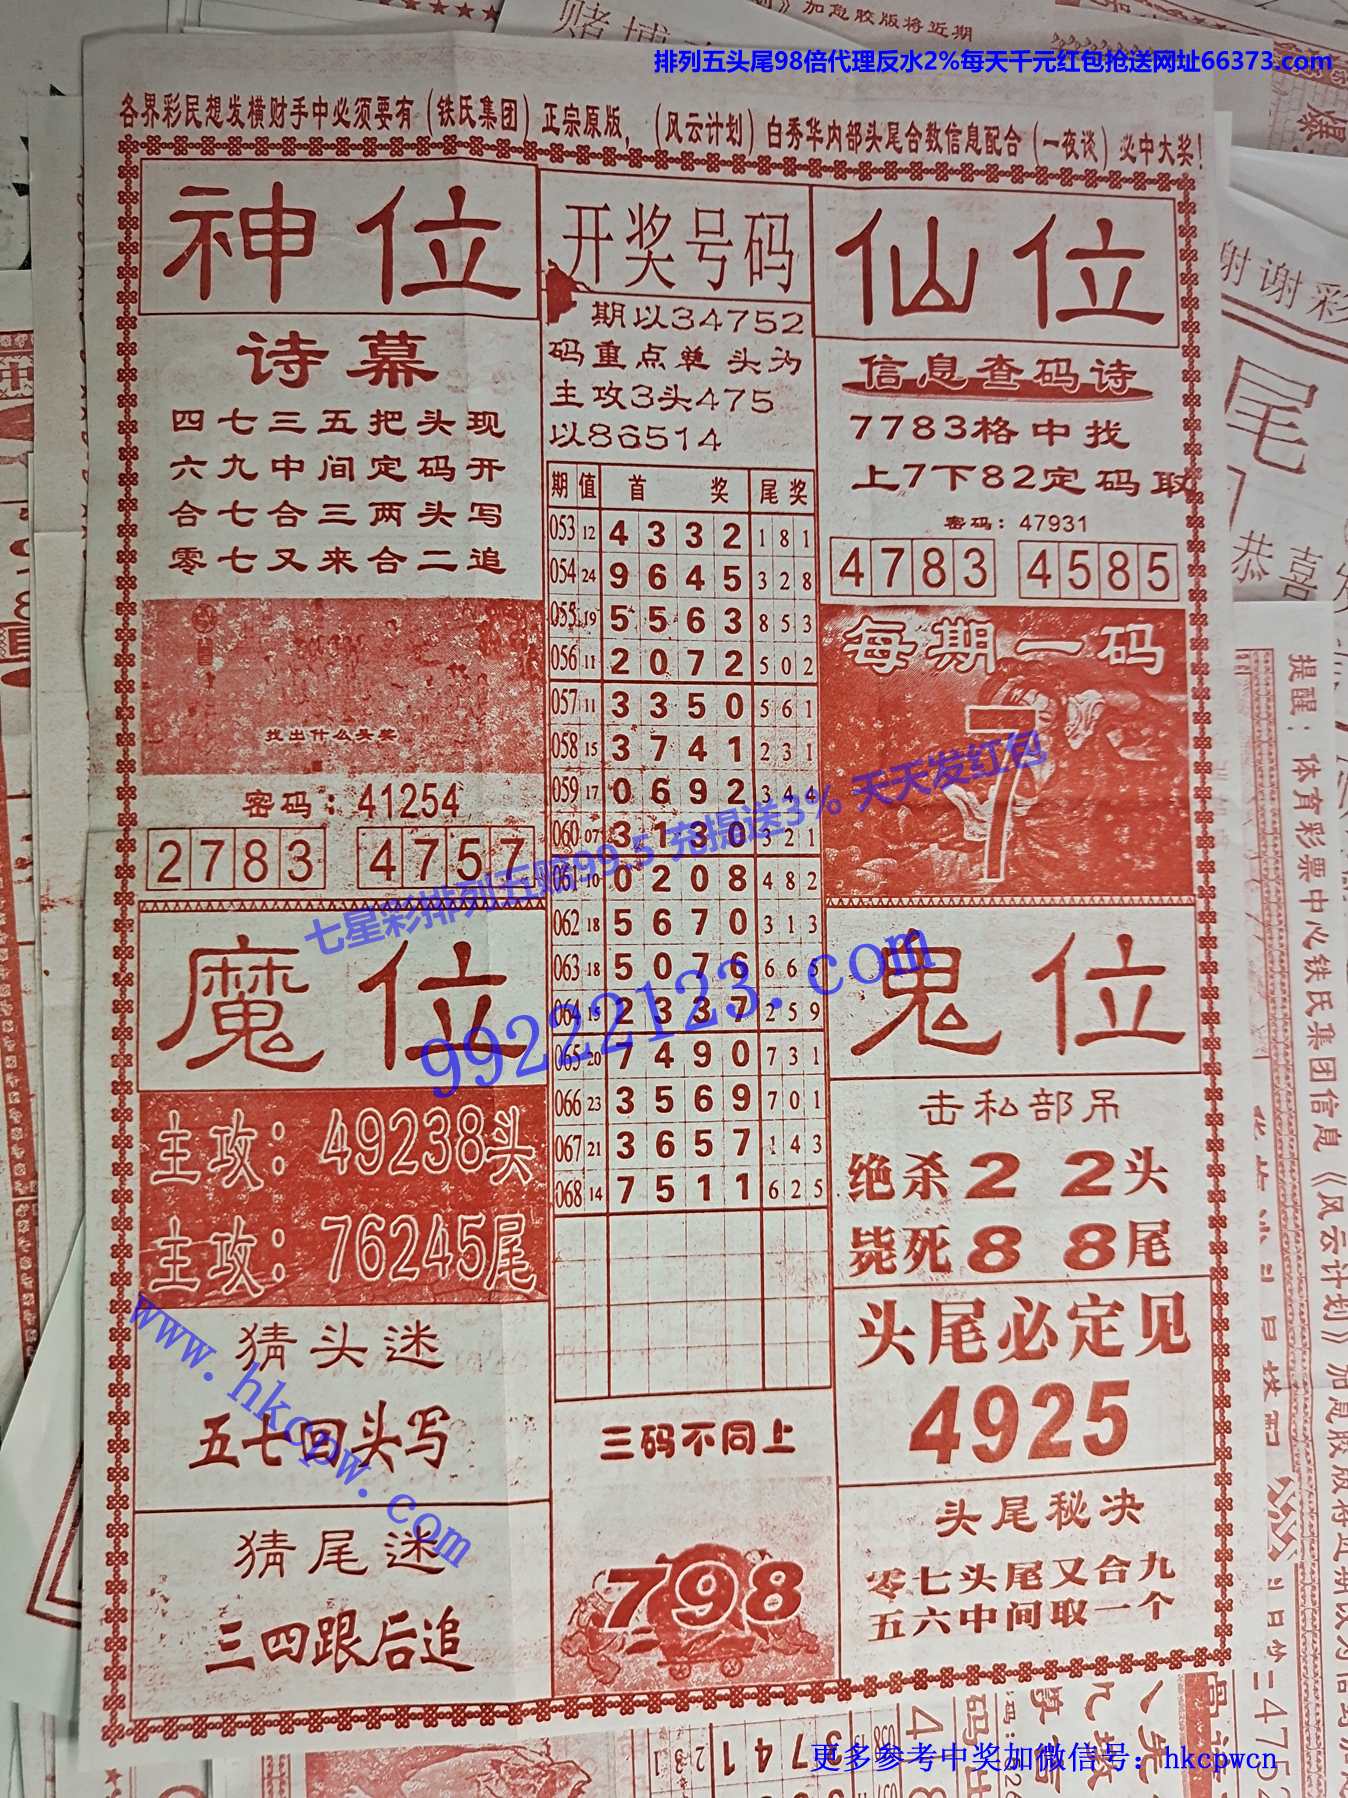 赌博
加急胶版将近期
排列五头尾98倍代理反水2%每天千元红包抢送网址66373.com
各界彩民想发横财手中必须要有（铁氏集团）正宗原版，（风云计划）白秀华内部头尾合数信息配合（一夜谈）必中大奖！
神位
诗幕
四七三五把头现
六九中间定码开
合七合三两头写
零七又来合二追
找出什么头奖
密码：41254
2783 4757
开奖号码
期以34752
码重点单 头为
主攻3头475
以86514
期 值 首 奖 尾奖
053 12 4 3 3 2 1 8 1
054 24 9 6 4 5 3 2 8
055 19 5 5 6 3 8 5 3
056 11 2 0 7 2 5 0 2
057 11 3 3 5 0 5 6 1
058 15 3 7 4 1 2 3 1
059 17 0 6 9 2 3 4 4
060 07 3 1 3 0 3 2 1
061 10 0 2 0 8 4 8 2
062 18 5 6 7 0 3 1 3
063 18 5 0 7 6 6 6 5
064 15 2 3 3 7 2 5 9
065 20 7 4 9 0 7 3 1
066 23 3 5 6 9 7 0 1
067 21 3 6 5 7 1 4 3
068 14 7 5 1 1 6 2 5
三码不同上
798
仙位
信息查码诗
7783格中找
上7下82定码取
密码：47931
4783 4585
每期一码
7
魔位
主攻：49238头
主攻：76245尾
猜头迷
五七回头写
猜尾迷
三四跟后追
鬼位
击私部吊
绝杀2 2头
毙死8 8尾
头尾必定见
4925
头尾秘决
零七头尾又合九
五六中间取一个
七星彩排列五赔99.5 充提送3% 天天发红包
99222123.com
www.hkcpw.com
谢谢彩
尾
恭喜
提醒：体育彩票中心铁氏集团信息《风云计划》加急胶版将近期
更多参考中奖加微信号：hkcpwcn